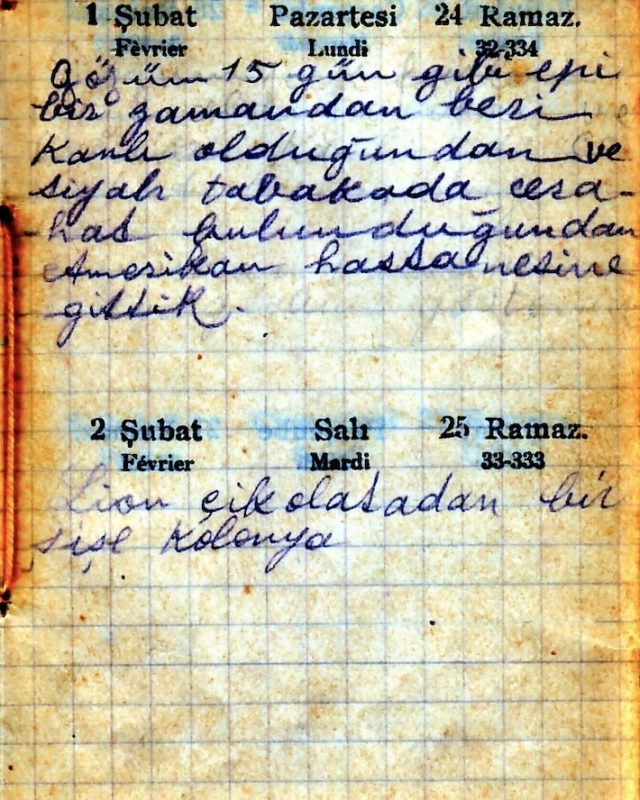 1 Şubat Pazartesi 24 Ramaz.
Fèvrier Lundi 32-334
Gözüm 15 gün gibi epi
bir zamandan beri
Kanlı olduğundan ve
siyah tabakada cera-
hat bulunduğundan
Amerikan hastanesine
gittik.
2 Şubat Salı 25 Ramaz.
Février Mardi 33-333
Lion çikolatadan bir
şişe kolonya